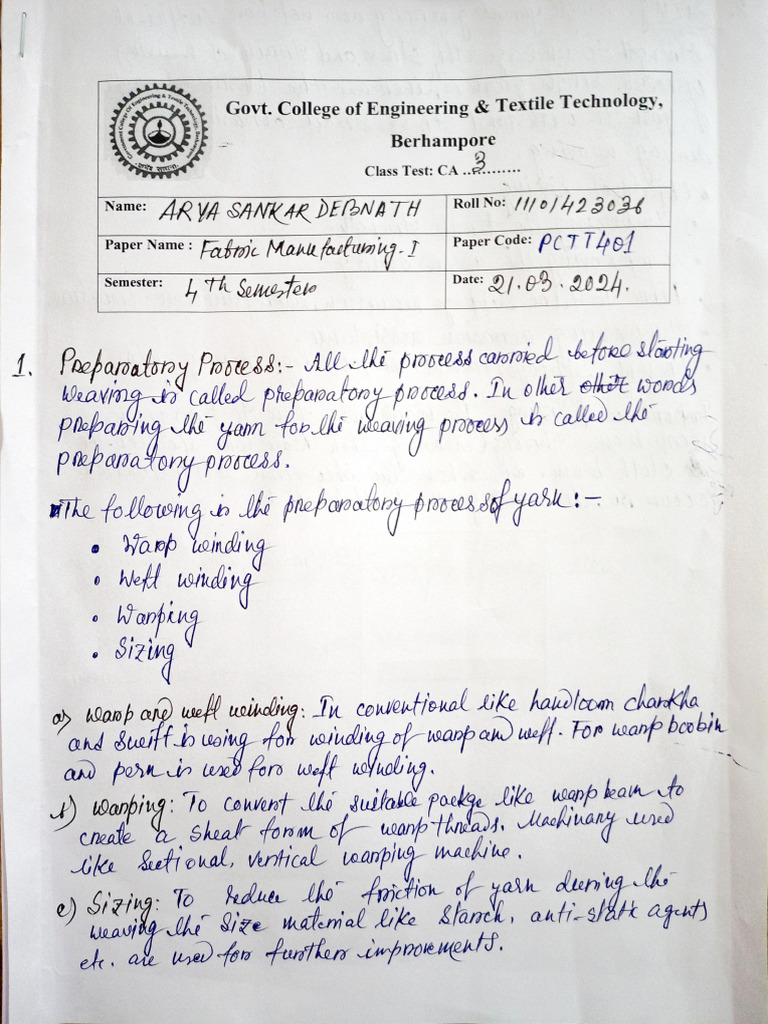 Govt. College of Engineering & Textile Technology,
Berhampore
Class Test: CA ..3..........
Name: ARYA SANKAR DEBNATH
Roll No: 11101423036
Paper Name : Fabric Manufacturing-I
Paper Code: PCTT401
Semester: 4th Semester
Date: 21.03.2024.
1. Preparatory Process:- All the process carried before starting
weaving is called preparatory process. In other words
preparing the yarn for the weaving process is called the
preparatory process.
The following is the preparatory process of yarn:-
• Warp winding
• Weft winding
• Warping
• Sizing
a) Warp and weft winding: In conventional like handloom charkha
and swift is using for winding of warp and weft. For warp boobin
and pern is used for weft winding.
b) Warping: To convert the suitable packge like warp beam to
create a sheat form of warp threads. Machinary used
like Sectional, vertical warping machine.
c) Sizing: To reduce the friction of yarn during the
weaving the size material like starch, anti-static agents
etc. are used for further improvements.